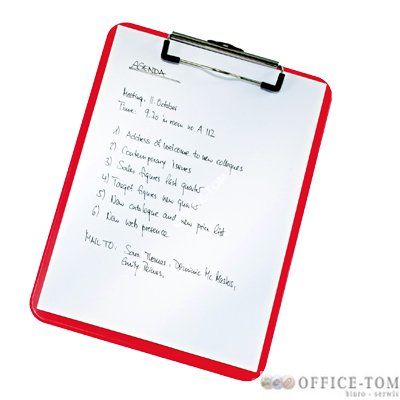 AGENDA
Meeting, 11. October
Time: 9.30 in room no A 112
1) Address of welcome to new collegues
2) Contemporary Issues
3) Sales figures last quarter
4) Target figures new quarter
5) New catalogue and new price list
6) New web presence
MAIL TO: Sara Thomas, Dominic Mc
Emily
OFFICE-TOM
biuro - serwis